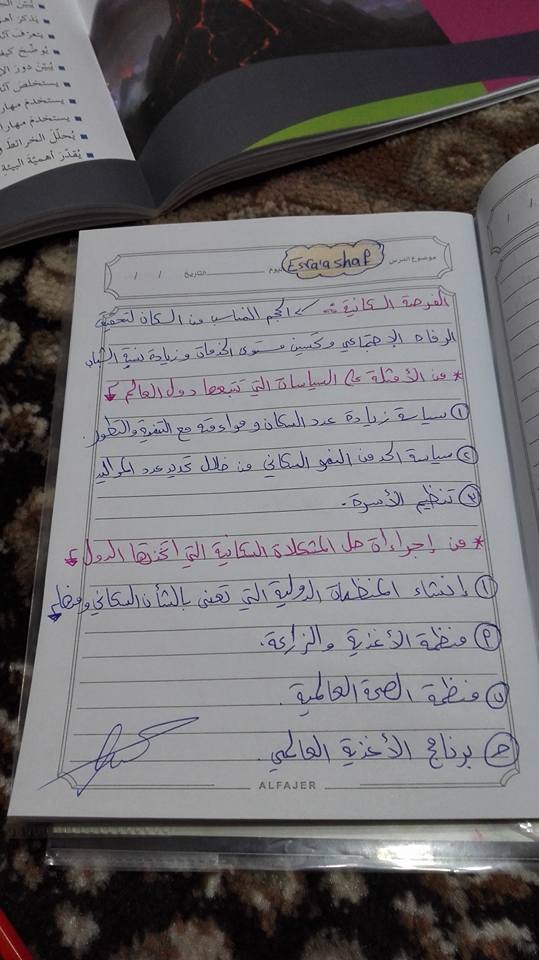 يبيّن
يذكر
يتعرف
يوضّح كيف
يبيّن دور
يستخلص
يستخدم مهار
يستخدم مهارا
يُحلّل الخرائط و
يُقدّر أهمية البيئة
موضوع الدرس
Esra'a shaf
اليوم
التاريخ / /
الفرصة السكانية :- الحجم المناسب من السكان لتحقيق
الرفاه الإجتماعي وتحسين مستوى الخدمات وزيادة نسبة الشباب
* من الأمثلة على السياسات التي تتبعها دول العالم
① سياسة زيادة عدد السكان ومواءمته مع التنمية والتطور.
② سياسة الحد من النمو السكاني من خلال تحديد عدد المواليد
③ تنظيم الأسرة.
* من إجراءات حل المشكلات السكانية التي اتخذتها الدول
① إنشاء المنظمات الدولية التي تعنى بالشأن السكاني ومنها
منظمة الأغذية والزراعة.
منظمة الصحة العالمية.
برنامج الأغذية العالمي.
ALFAJER